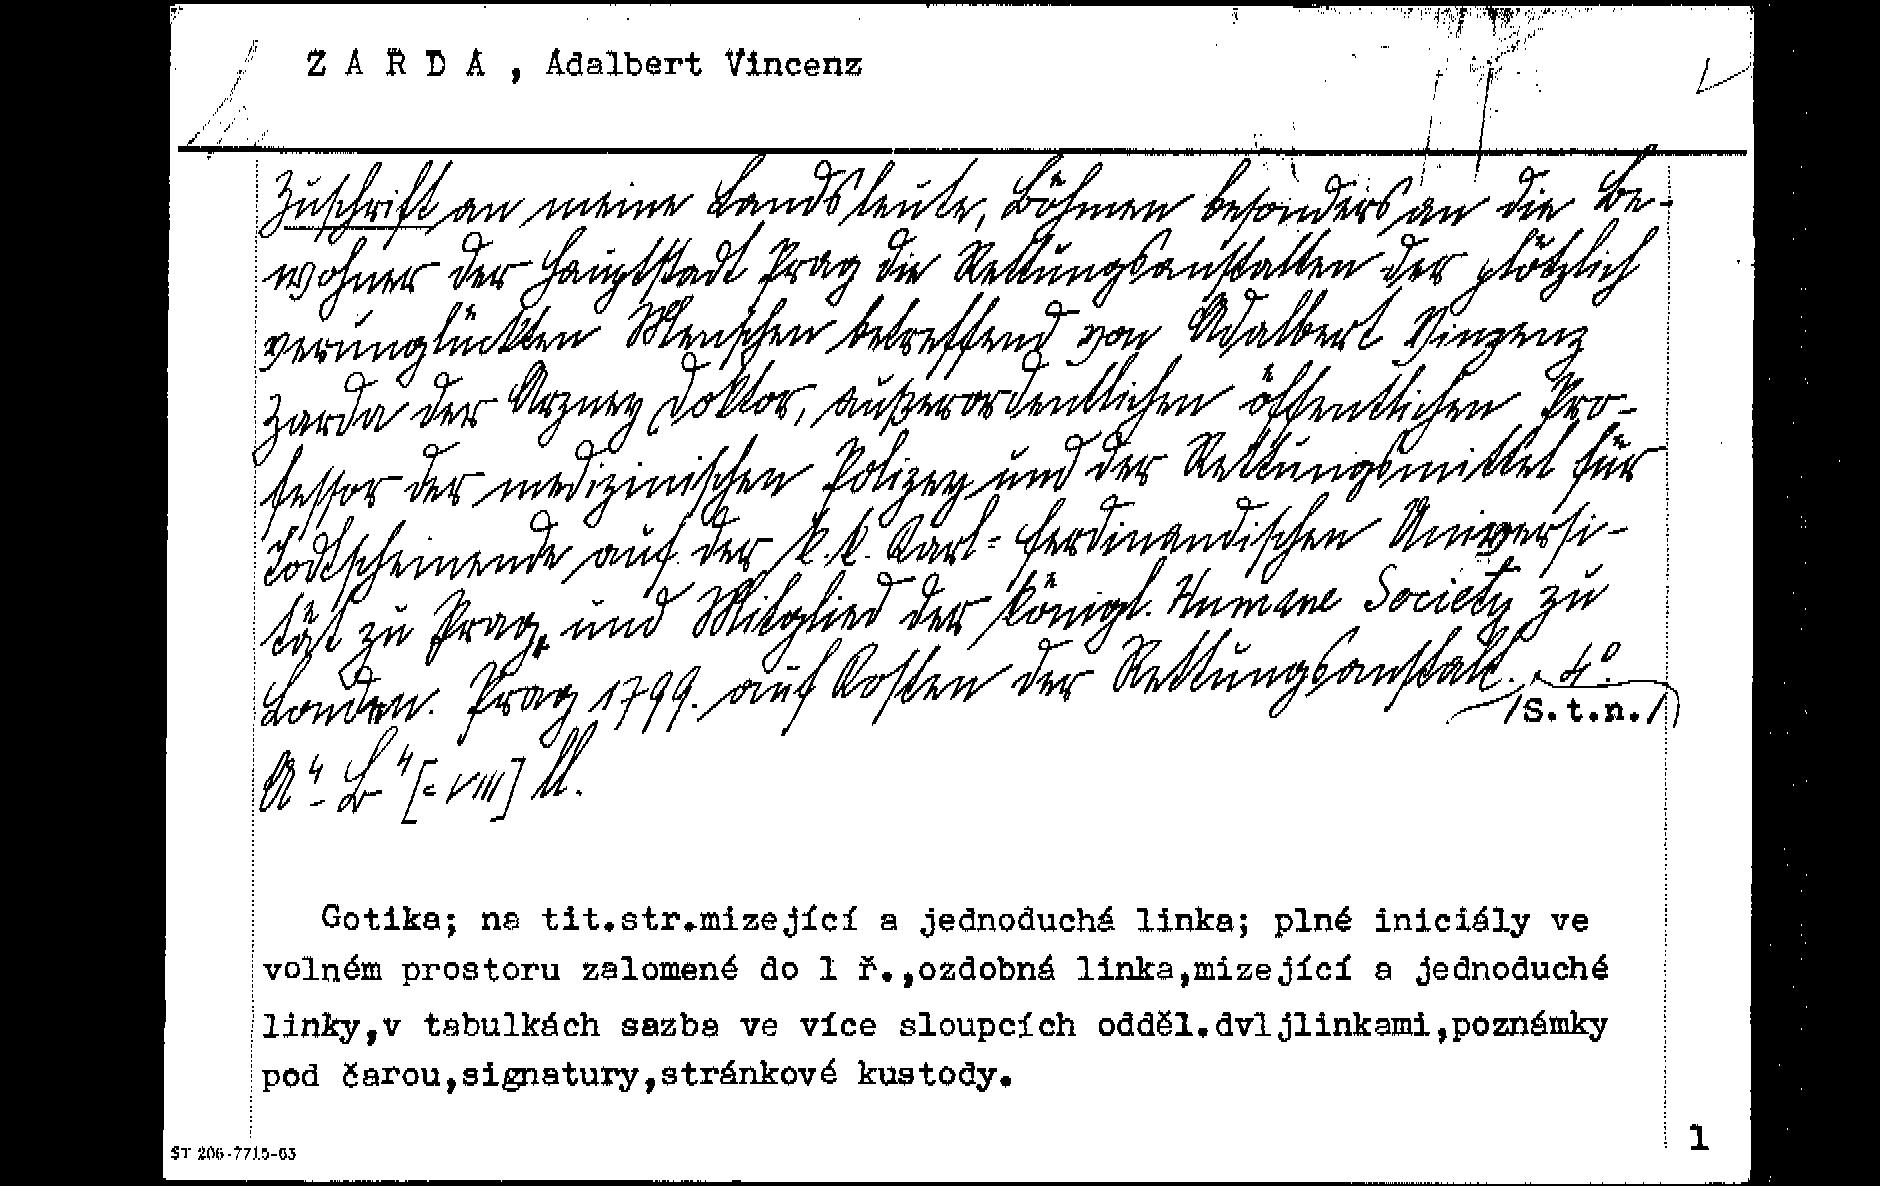 Z A R D A , Adalbert Vincenz
Zuschrift an meine Landsleute, Böhmen besonders an die Be-
wohner der Hauptstadt Prag die Rettungsanstalten der plötzlich
verunglückten Menschen betreffend von Adalbert Vinzenz
Zarda der Arzney Doktor, außerordentlichen öffentlichen Pro-
fessor der medizinischen Polizey und der Rettungsmittel für
Todtscheinende auf der k. k. Karl- Ferdinandischen Universi-
tät zu Prag, und Mitglied der königl. Humane Society zu
London. Prag 1799. auf Kosten der Rettungsanstalt. 4°.
/S.t.n./
A⁴ - B⁴ [= VIII] ll.
Gotika; na tit.str.mizející a jednoduchá linka; plné iniciály ve
volném prostoru zalomené do 1 ř.,ozdobná linka,mizející a jednoduché
linky,v tabulkách sazba ve více sloupcích odděl.dvljlinkami,poznámky
pod čarou,signatury,stránkové kustody.
1
ST 206-7715-63